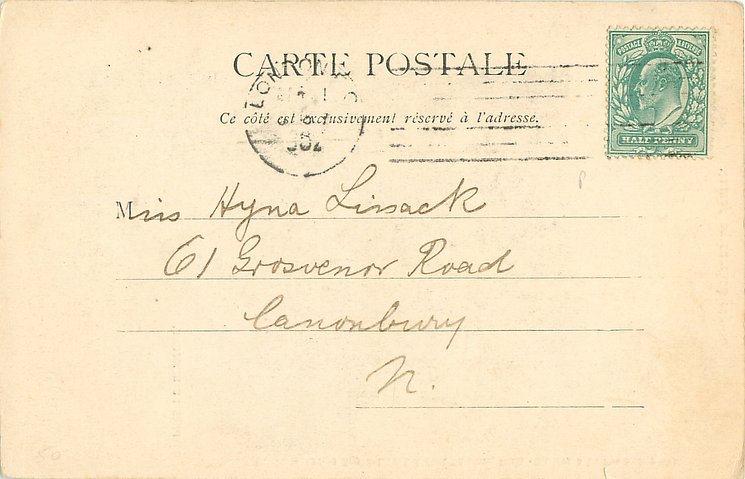 CARTE POSTALE
LONDON
Ce côté est exclusivement réservé à l'adresse.
POSTAGE REVENUE
HALF PENNY
Miss Hyna Lissack
61 Grosvenor Road
Canonbury
N.
P
50